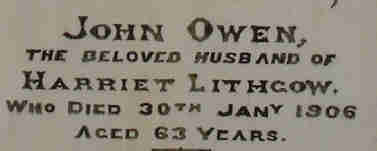 JOHN OWEN,
THE BELOVED HUSBAND OF
HARRIET LITHGOW.
WHO DIED 30TH JANY 1906
AGED 63 YEARS.